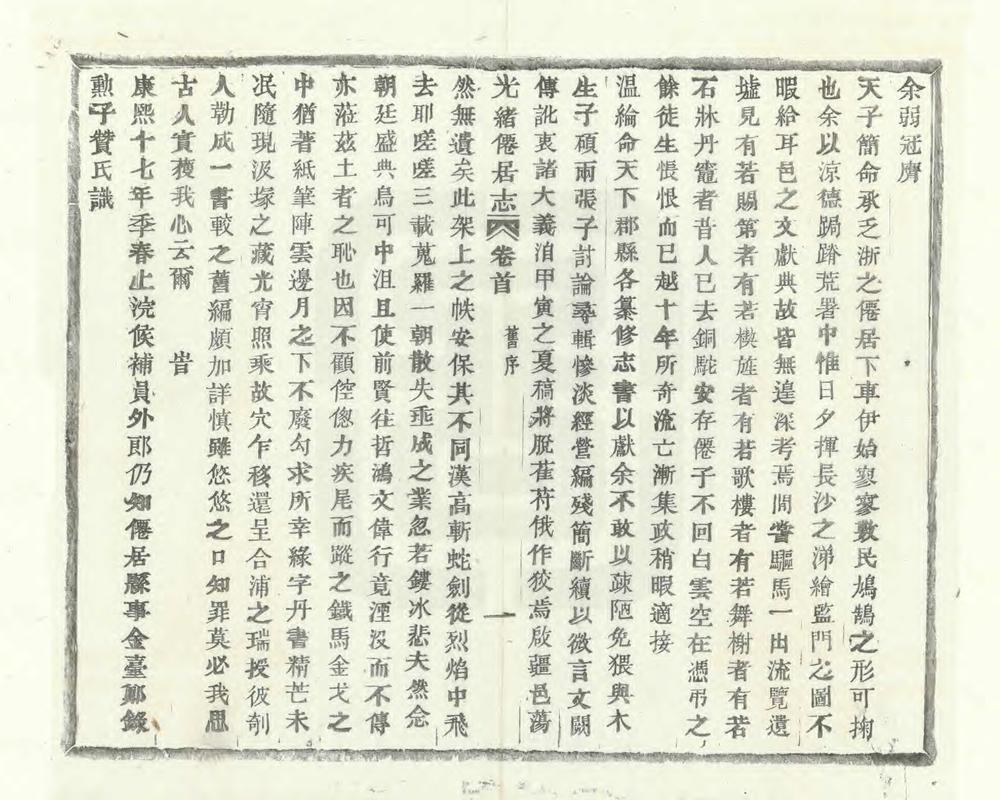 余弱冠膺
天子簡命承乏浙之僊居下車伊始寥寥數民鳩鵠之形可掬
也余以涼德跼蹐荒署中惟日夕揮長沙之涕繪監門之圖不
暇給耳邑之文獻典故皆無遑深考焉間嘗驅馬一出流覽遺
墟見有若賜第者有若楔旌者有若歌樓者有若舞榭者有若
石牀丹竈者昔人已去銅駝安存僊子不回白雲空在憑弔之
餘徒生悵恨而已越十年所奇流亡漸集政稍暇適接
溫綸命天下郡縣各纂修志書以獻余不敢以疎陋免猥與木
生子碩兩張子討論尋輯慘淡經營編殘簡斷續以微言文闕
傳訛衷諸大義洎甲寅之夏稿將脫萑苻俄作狡焉啟疆邑蕩
光緒僊居志 卷首 舊序 一
然無遺矣此架上之帙安保其不同漢高斬蛇劍從烈焰中飛
去耶嗟嗟三載蒐羅一朝散失垂成之業忽若鏤冰悲夫然念
朝廷盛典烏可中沮且使前賢往哲鴻文偉行竟湮沒而不傳
亦蒞茲土者之恥也因不顧倥傯力疾尾而蹤之鐵馬金戈之
中猶著紙筆陣雲邊月之下不廢勾求所幸緣字丹書精芒未
泯隨現汲塚之藏光宵照乘故穴乍移還呈合浦之瑞授彼剞
人勒成一書較之舊編頗加詳慎雖悠悠之口知罪莫必我思
古人實獲我心云爾 旹
康熙十七年季春上浣候補員外郎仍知僊居縣事金臺鄭錄
勳子贊氏識